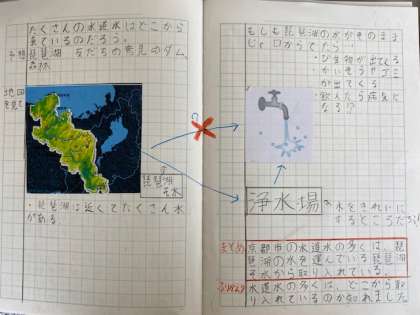 たくさんの水道水はどこから
来ているのだろう。
予想 琵琶湖 友だちの意見のダム、
森林
地図
を見て
琵琶湖
そ水
・琵琶湖は近くてたくさん水
がある。
もしも琵琶湖の水がそのまま
じゃ口からでたら…
・び生物が出てくる
・かいそうやゴミ
が出てくる
・飲んだら病気に
なる!?
浄水場
水をきれいに
するところだろ
まとめ 京都市の水道水の多くは、琵
琶湖の水を運んでいる琵琶湖
そ水から取り入れている。
ふりかえり 水道水の多くは、どこから取
り入れているのか知れました